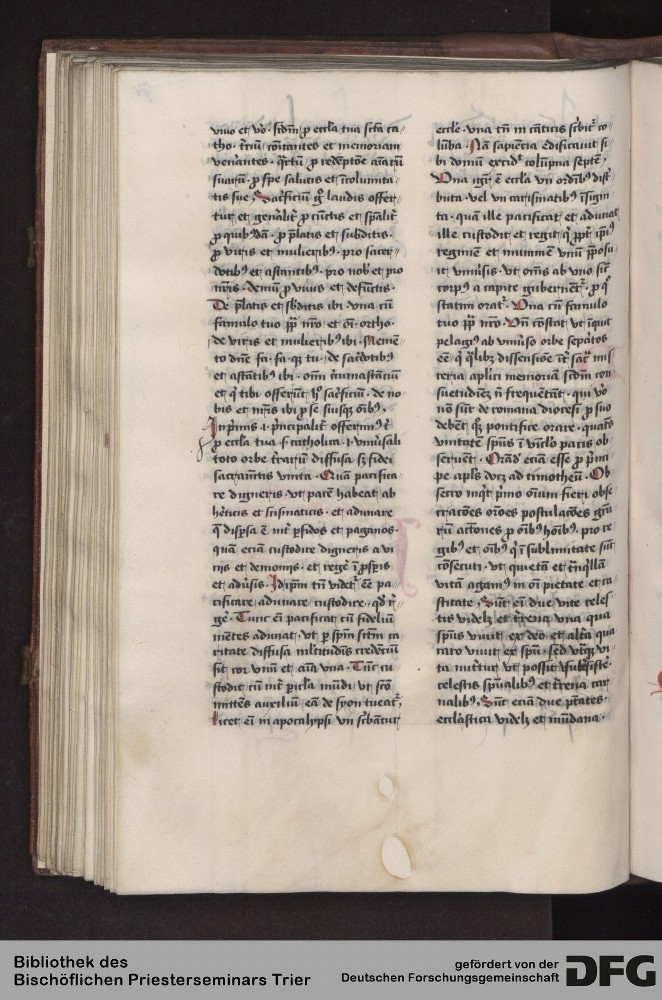 viuo et vo. scdm p eccla tua scta ca
tho. terciu coicantes et memoriam
venantes. qrtu p redeptoe aiaru
suaru. p spe salutis et icolumita
tis sue. Sacrificiu g laudis offer
tur et genalit p cunctis et spalit
p quibda. p platis et subditis.
p viris et mulieribus. pro sacer
dotibus et astantibus. pro nob et pro
nris. demu p viuis et defunctis.
De platis et sbditis ibi. vna cu
famulo tuo pp nro et oi ortho.
de viris et mulieribus ibi. Memen
to dne fa. fa. qz tu. de sacdotibus
et astatibus ibi. oim circumastaciu
et q tibi offerunt h sacrificiu. de no
bis et nris ibi p se suisqz oibus.
In pmis .i. pncipalit offerim
p eccla tua s. catholica .i. vniusali
toto orbe terraru diffusa sz fidei
sacramtis vnita. Qua pacifica
re digneris. vt pace habeat ab
hreticis et scismaticis. et adunare
q dispsa e int pfidos et paganos.
qua ecia custodire digneris a vi
cijs et demonijs. et rege i pspis
et aduersis. Idipm tn videt ee pa
cificare adunare custodire. qd re
ge. Tunc ei pacificat cu fideliu
metes adunat. vt p spm sctm ca
ritate diffusa multitudinis credenciu
sit cor vnu et aia vna. Tuc cu
stodit cu int picla mudi vt sco
mittens auxiliu ea de syon tueatr.
licet ei in apocalypsi vn scbantur
eccle. vna tn in canticis scbit co
luba. Na sapiecia edificauit si
bi domu excid columpna septe.
Vna igr e eccla vn ordibus dist
buta. vel vn carismatibus isigni
ta. qua ille pacificat et adunat
ille custodit et regit q ppt ipi
regime et munimen vnu pposu
it vniusis. vt oms ab vno sic
corpus a capite gubernet. p q
statim orat. Vna cu famulo
tuo pp nro. Vn costat vt iquit
pelagius ab vniuso orbe separatos
ee q qlibz dissensioe it sac mis
teria aplici memoria scdm con
suetudine n frequetat. qui vo
no sut de romana diocesi p suo
debet qz pontifice orare. quats
vnitate spus i viclo pacis ob
seruet. Orad ecia esse p pnci
pe apls docz ad timotheu. Ob
secro inqt pmo oium fieri obse
craciones oroes postulacoes gra
ru actiones p oibus hoibus. pro re
gibus et oibus q i sublimitate sut
coseruti. vt quieta et tnqlla
vita agamus in oi pietate et ca
stitate. Sut ei due vite celes
tis videlz et trena vna qua
spus viuit ex deo et altra qua
caro viuit ex spu. sed vtqz vi
ta nutrit vt possit subsiste.
celestis spualibus et trena car
nalibus. Sut ecia due ptates.
ecclastica videlz et mudana.
Bibliothek des
Bischöflichen Priesterseminars Trier
gefördert von der
Deutschen Forschungsgemeinschaft
DFG